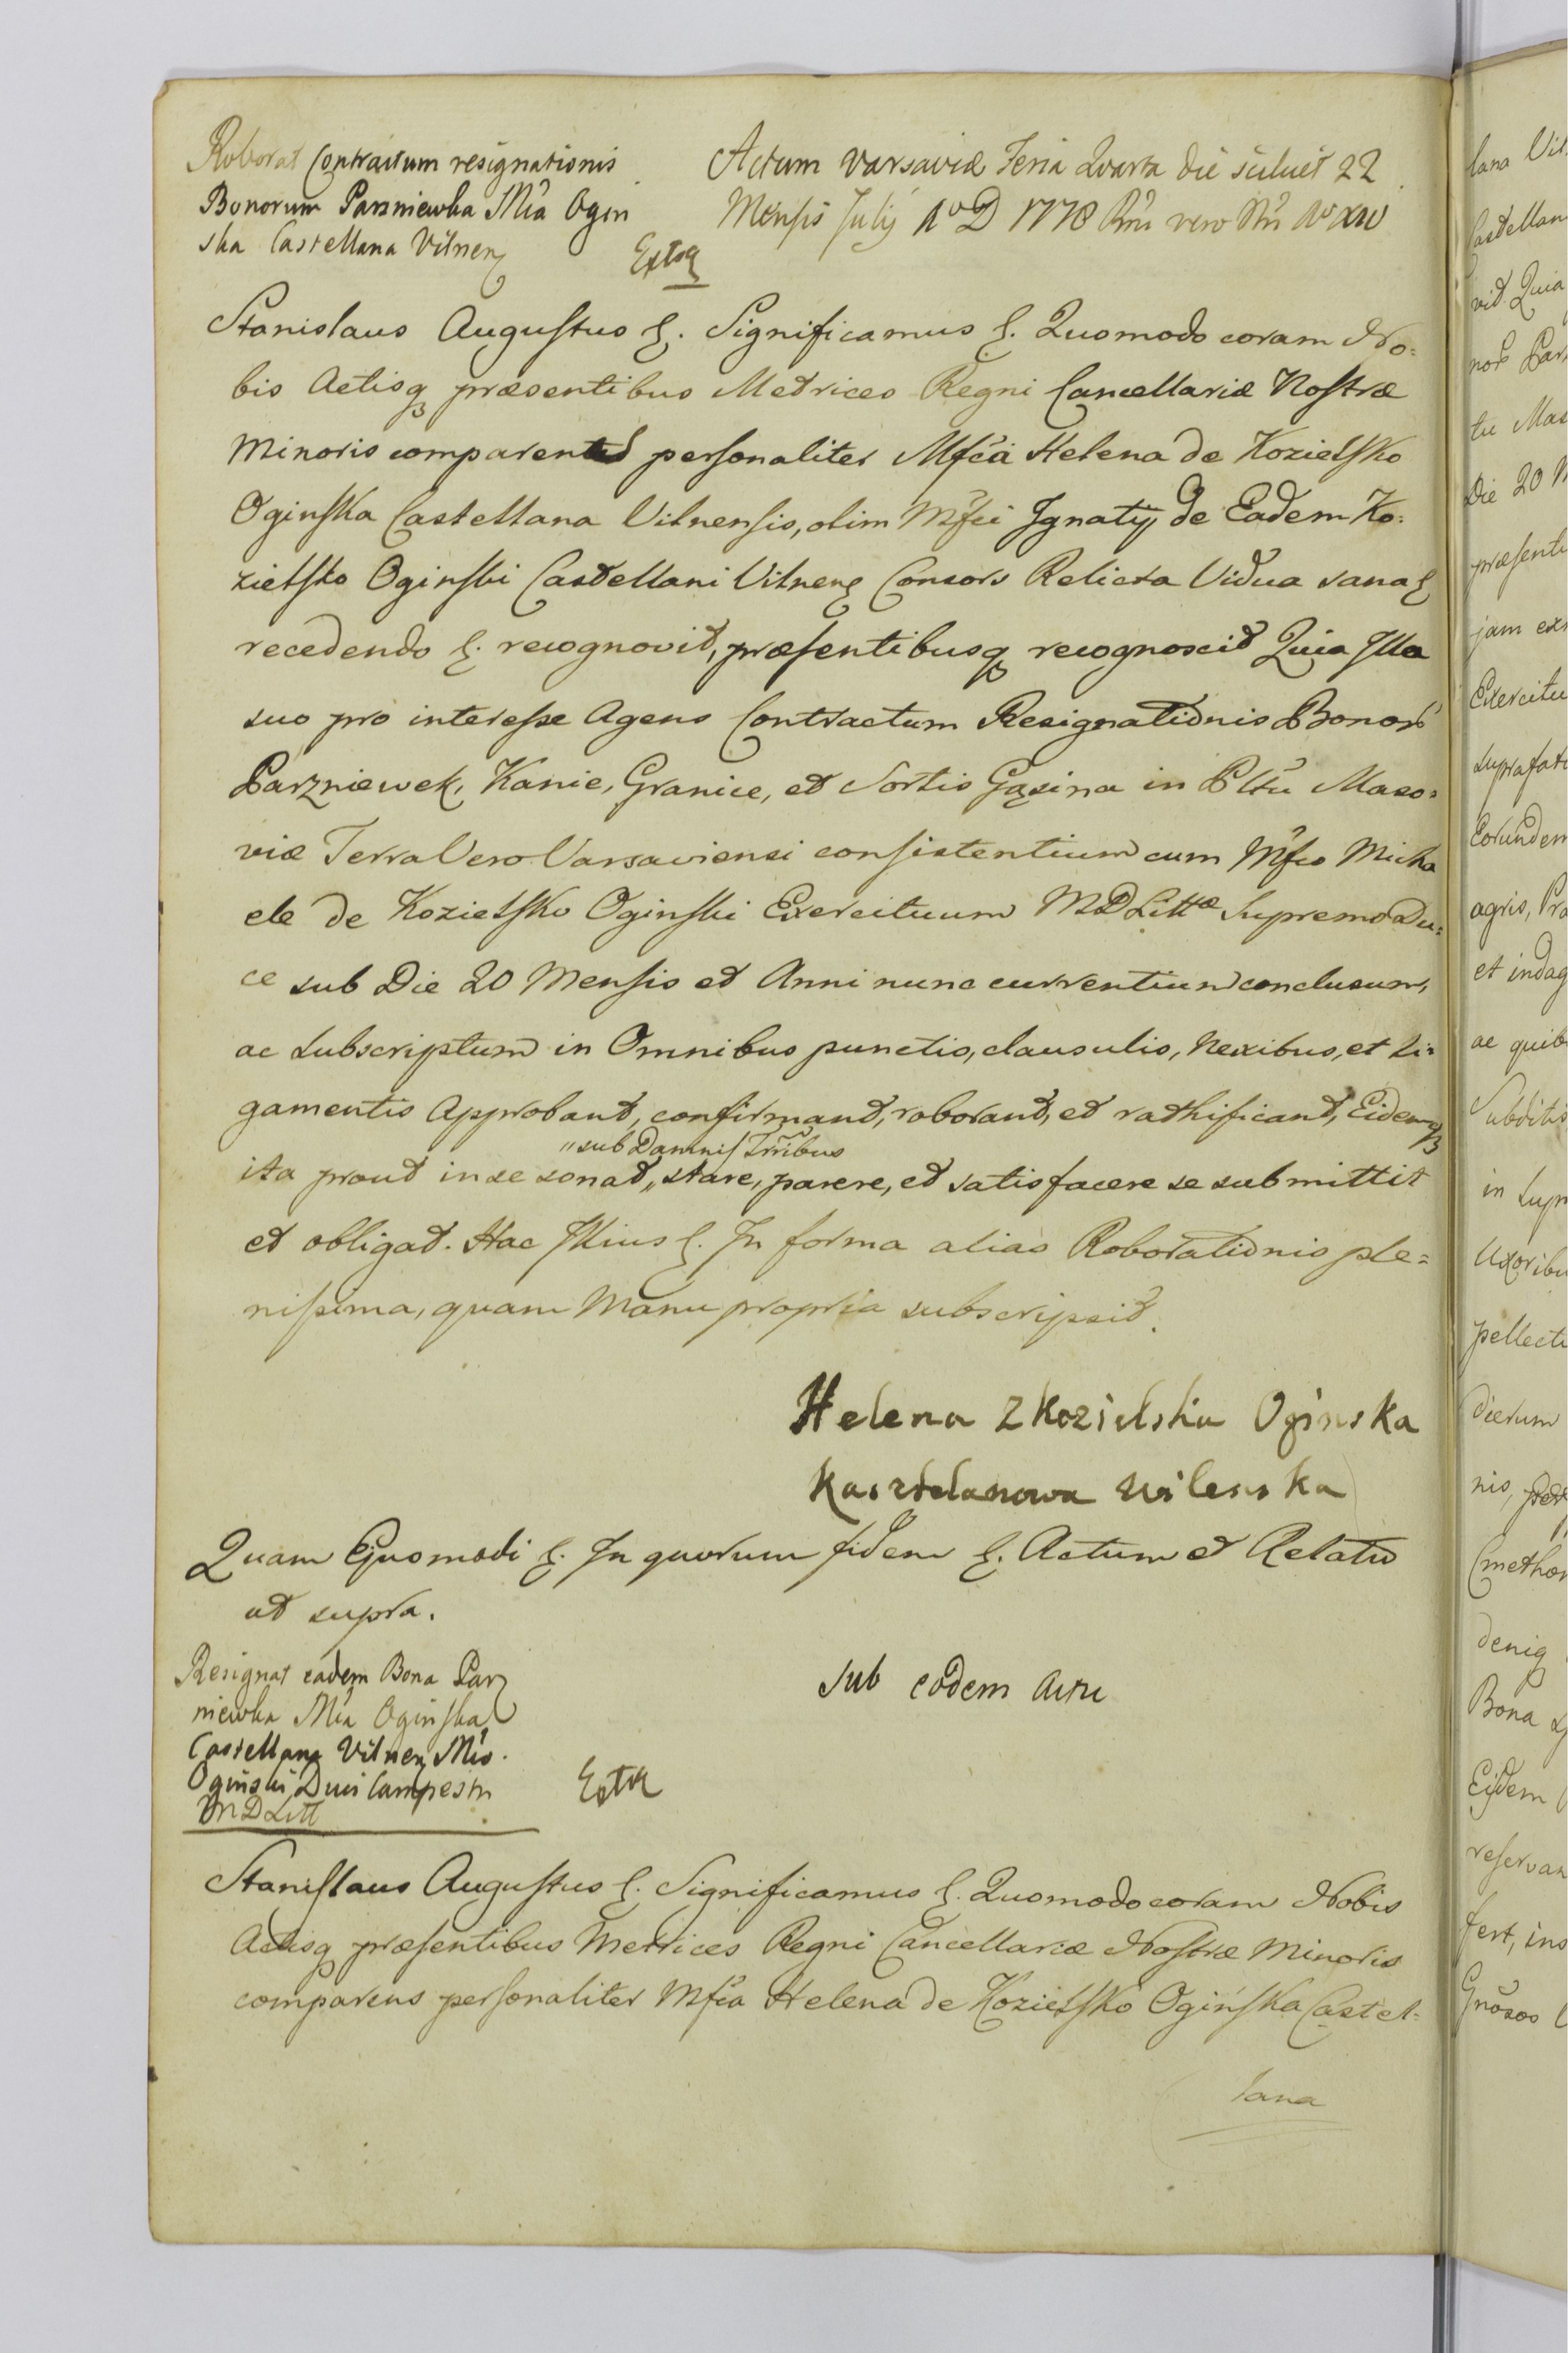 Roborat Contractum resignationis
Bonorum Parzniewka Mĩa Ogin
ska Castellana Vilnen
Extra
Actum Varsaviæ Feria Quarta die scilicet 22
Mensis Julij AoD 1778 Rñi vero Ñri Ao XIV
Stanislaus Augustus &. Significamus &. Quomodo coram No=
bis Actisq præsentibus Metrices Regni Cancellariæ Nostræ
Minoris comparens personaliter Mfca Helena de Kozielsko
Oginska Castellana Vilnensis, olim Mfci Ignatij de Eadem Ko=
zielsko Oginski Castellani Vilnen Consors Relicta Vidua sana &
recedendo &. recognovit, præsentibusq recognoscit Quia Illa
suo pro interesse Agens Contractum Resignationis Bonor
Parzniewek, Kanie, Granice, et Sortis Gąsina in Pltũ Maso=
viæ Terra Vero Varsaviensi consistentium cum Mfco Micha
ele de Kozielsko Oginski Exercituum MDLittæ Supremo Du=
ce sub Die 20 Mensis et Anni nunc currentium conclusum,
ac subscriptum in Omnibus punctis, clausulis, Nexibus, et Li=
gamentis Approbant, confirmant, roborant, et rathificant, Eidemq
„sub Damnis Trribus
ita prout in se sonat„ stare, parere, et satisfacere se submittit
et obligat. Hac Illius &. In forma alias Roborationis ple=
nissima, quam Manu propria subscripsit.
Helena z Kozielska Oginska
Kasztelanowa Wilenska
Quam Ejusmodi &. In quorum fidem &. Actum et Relatio
ut supra.
Resignat eadem Bona Parz
niewka Mĩa Oginska
Castellana Vilnen Mfo.
Oginski Duci Campestri
MDLitt
Extra
Sub eodem Actu
Stanislaus Augustus &. Significamus &. Quomodo coram Nobis
Actisq præsentibus Metrices Regni Cancellariæ Nostræ Minoris
comparens personaliter Mfca Helena de Kozielsko Ogińska Castel=
lana
lana Vil
Castellan
vit Quia
nor Par
tu Mas
Die 20 M
præsenti
jam ex
Exercitu
suprafat
Eorundem
agris, Pra
et indag
ac quib
Subditis
in sup
Uxoribu
pellecti
dierum
nis,
Cmethon
deniq
Bona
Eisdem
reservan
fert, ins
Gnosos